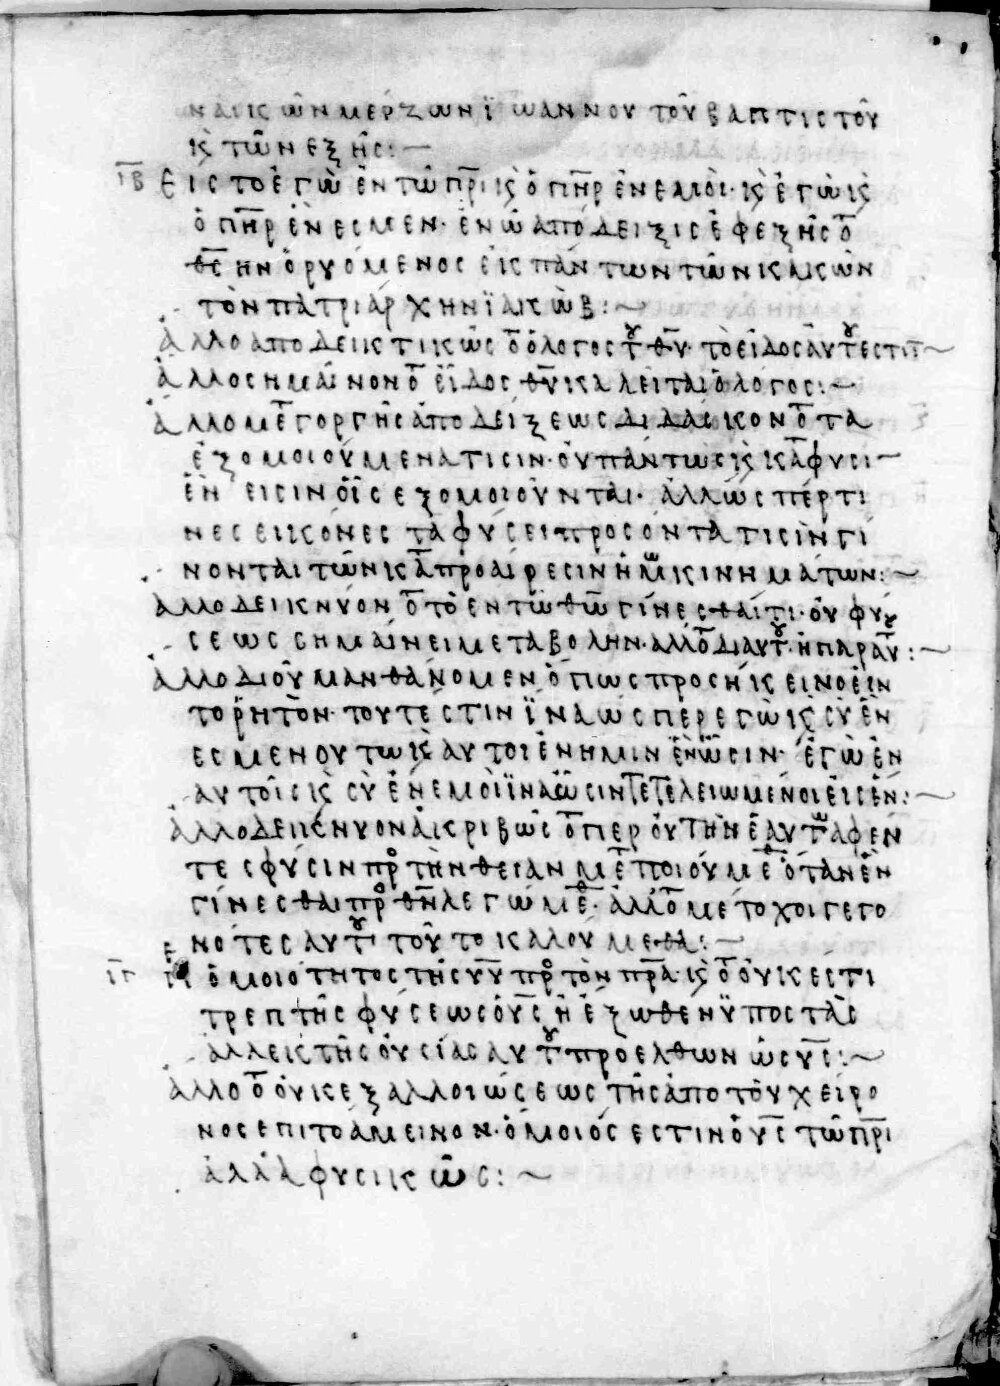 ναικῶν μείζων ϊωάννου τοῦ βαπτιστοῦ
κ(αὶ) τῶν ἑξῆς:~
ιβ Εἰς τὸ ἐγὼ ἐν τῶ πρι κ(αὶ) ὁ πηρ ἐν ἐμοί· κ(αὶ) ἐγὼ κ(αὶ)
ὁ πηρ ἕν ἐσμεν· ἐν ὧ ἀπόδειξις ἐφεξῆς ὅτ(ι)
θς ἦν ὁ ρυόμενος ἐκ πάντων τῶν κακῶν
τὸν πατριάρχην ϊακώβ:~
ἄλλο ἀποδεικτικῶς ὅτ(ι) ὁ λόγος τοῦ θυ· τὸ εἶδος αὐτοῦ ἐστιν~
ἄλλο σημαῖνον ὅτ(ι) εἶδος θυ καλεῖται ὁ λόγος:~
ἄλλο μετ' ὀργῆς ἀποδείξεως διδάσκον ὅτ(ι) τὰ
ἐξομοιούμενα τισὶν· οὐ πάντως κ(αὶ) κατὰ φύσι~
ἕν εἰσιν οἷς ἐξομοιοῦνται· ἀλλ' ὥσπέρ τι
νες εἰκόνες τὰ φύσει προσόντα τισὶν γί
νονται τῶν κατὰ προαίρεσιν ἡμῶν κινημάτων:~
ἄλλο δεικνύον ὅτ(ι) τὸ ἐν τῶ θῶ γίνεσθαί τι· οὐ φύ
σεως σημαίνει μεταβολὴν· ἀλλ' ὅτ(ι) δι' αὐτοῦ· ἢ παρ' αὐτοῦ:~
ἄλλο δι' οὗ μανθάνομεν ὅπως προσῆκει νοεῖν
τὸ ῥητὸν· τουτέστιν ϊνα ὥσπερ ἐγὼ κ(αὶ) σὺ ἕν
ἐσμεν οὕτω κ(αὶ) αὐτοὶ ἐν ἡμῖν ἓν ὦσιν· ἐγὼ ἐν
αὐτοῖς κ(αὶ) σὺ ἐν ἐμοὶ ϊνα ὦσιν τετελειωμένοι εἰς ἕν:~
ἄλλο δεικνύον ἀκριβῶς ὅτ(ι) περ οὐ τὴν ἑαυτῶν ἀφέν
τες φύσιν προς τὴν θείαν μεταποιούμεθ(α) ὅταν ἓν
γίνεσθαι προς θν λεγώμεθ(α)· ἀλλ' ὅτ(ι) μέτοχοι γεγο
νότες αὐτοῦ τοῦτο καλούμεθα:~
ιγ Εκ ὁμοιότητος τῆς υυ προς τὸν πρα κ(αὶ) ὅτ(ι) οὐκ ἔστι
τρεπτῆς φύσεως ὁ υς ἢ ἔξωθεν ϋποστὰς
ἀλλ' ἐκ τῆς οὐσίας αὐτοῦ προελθὼν ὡς υς:~
ἄλλο ὅτ(ι) οὐκ ἐξ ἀλλοιώσεως τῆς ἀπὸ τοῦ χείρο
νος ἐπὶ τὸ ἄμεινον· ὅμοιός ἐστιν ὁ υς τῶ πρι
ἀλλὰ φυσικῶς:~